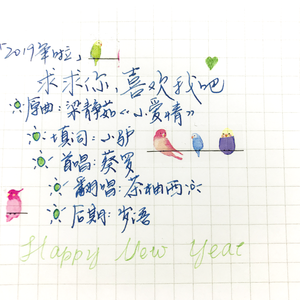 「2019年啦」
求求你，喜欢我吧
原曲：梁静茹《小爱情》
填词：小驴
首唱：葵罗
翻唱：茶柚两六
后期：岁语
Happy New Year